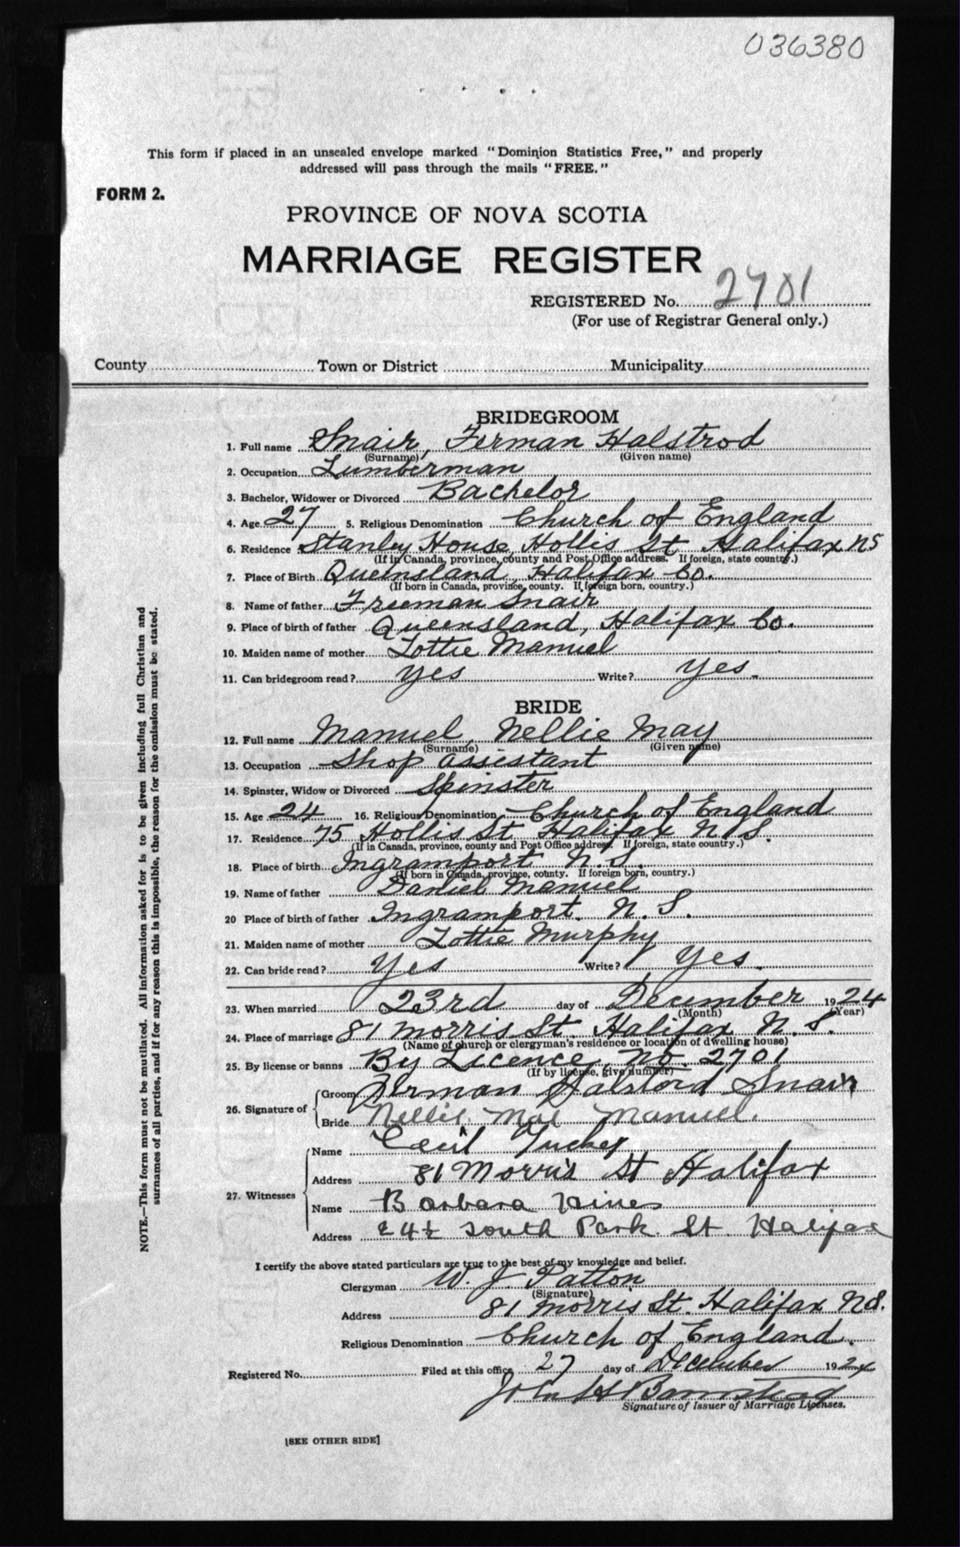 036380
This form if placed in an unsealed envelope marked "Dominion Statistics Free," and properly
addressed will pass through the mails "FREE."
FORM 2.
PROVINCE OF NOVA SCOTIA
MARRIAGE REGISTER
REGISTERED No. 2701
(For use of Registrar General only.)
County Town or District Municipality
BRIDEGROOM
1. Full name Snair, Ferman Halstrod
(Surname) (Given name)
2. Occupation Lumberman
3. Bachelor, Widower or Divorced Bachelor
4. Age 27 5. Religious Denomination Church of England
6. Residence Stanley House, Hollis St Halifax NS
(If in Canada, province, county and Post Office address. If foreign, state country.)
7. Place of Birth Queensland, Halifax Co.
(If born in Canada, province, county. If foreign born, country.)
8. Name of father Freeman Snair
9. Place of birth of father Queensland, Halifax Co.
10. Maiden name of mother Lottie Manuel
11. Can bridegroom read? yes Write? yes.
BRIDE
12. Full name Manuel, Nellie May
(Surname) (Given name)
13. Occupation Shop assistant
14. Spinster, Widow or Divorced Spinster
15. Age 24 16. Religious Denomination Church of England
17. Residence 75 Hollis St Halifax N.S.
(If in Canada, province, county and Post Office address. If foreign, state country.)
18. Place of birth Ingramport N.S.
(If born in Canada, province, county. If foreign born, country.)
19. Name of father Daniel Manuel
20 Place of birth of father Ingramport. N.S.
21. Maiden name of mother Lottie Murphy
22. Can bride read? Yes Write? Yes.
23. When married 23rd day of December 1924
(Month) (Year)
24. Place of marriage 81 Morris St Halifax N.S.
(Name of church or clergyman's residence or location of dwelling house)
25. By license or banns By Licence, No. 2701
(If by license, give number)
26. Signature of Groom Ferman Halsford Snair
Bride Nellie Mae Manuel.
27. Witnesses Name Cecil Tuckey
Address 81 Morris St Halifax
Name Barbara Hines
Address 24½ South Park St Halifax
I certify the above stated particulars are true to the best of my knowledge and belief.
Clergyman W. J Patton
(Signature)
Address 81 Morris St. Halifax N.S.
Religious Denomination Church of England.
Registered No. Filed at this office 27 day of December 1924
John H Barnstead
Signature of Issuer of Marriage Licenses.
[SEE OTHER SIDE]
NOTE.—This form must not be mutilated. All information asked for is to be given including full Christian and
surnames of all parties, and if for any reason this is impossible, the reason for the omission must be stated.